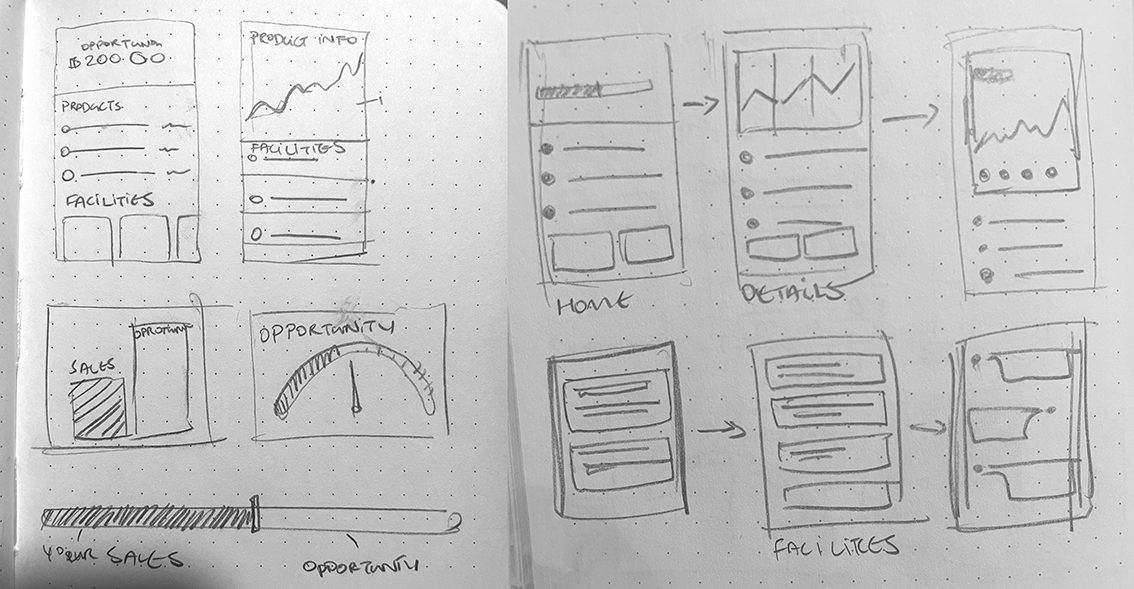 OPPORTUNI
$ 200.00
PRODUCTS
FACILITIES
PRODUCT INFO
FACILITIES
SALES
OPROTUNI
OPPORTUNITY
YOUR SALES
OPPORTUNTY
HOME
DETAILS
FACILITIES